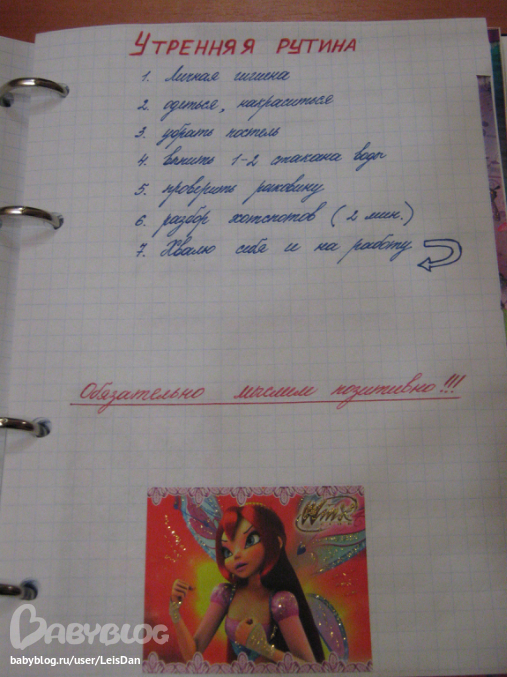 УТРЕННЯЯ РУТИНА
1. Личная гигиена
2. одеться, накраситься
3. убрать постель
4. выпить 1-2 стакана воды
5. проверить раковину
6. разбор хотспотов (2 мин.)
7. Хвалю себя и на работу
Обязательно мыслим позитивно!!!
Winx
BABYBLOG
babyblog.ru/user/LeisDan